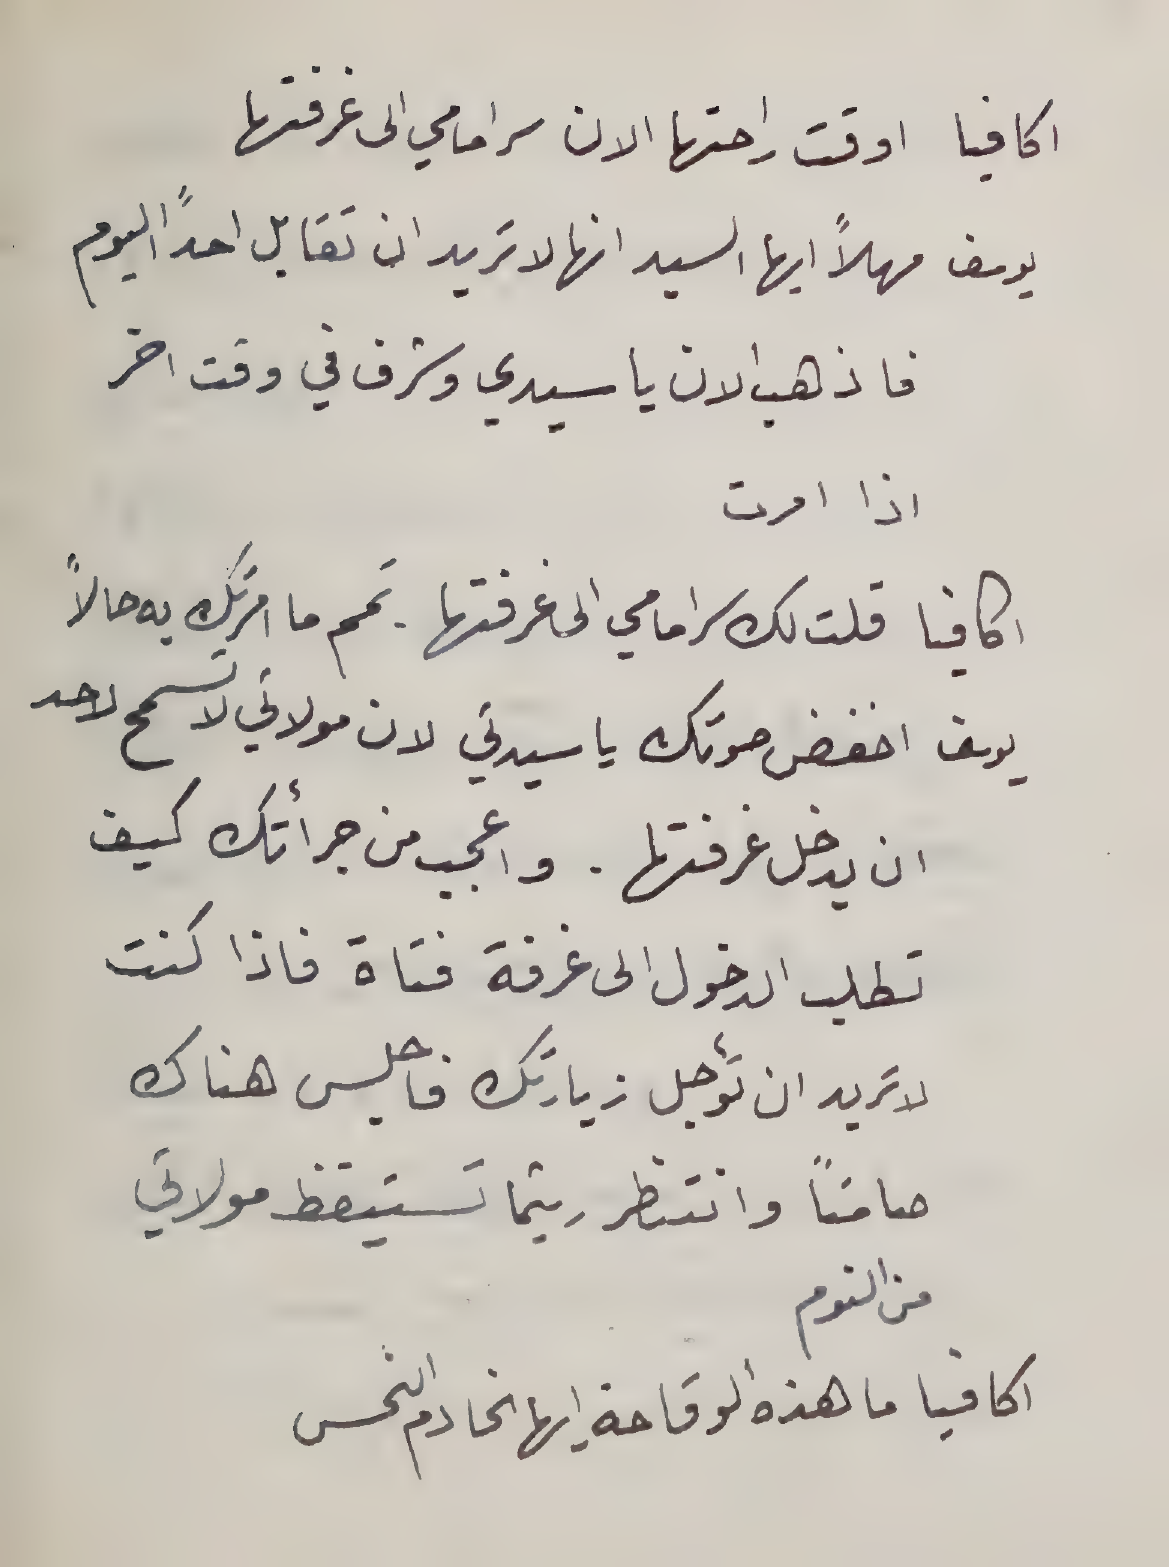 اكافيا اوقت راحتها الان سر امامي الى غرفتها
يوسف مهلاً ايها السيد انها لا تريد ان تقابل احداً اليوم
فاذهب الان يا سيدي وشرف في وقت اخر
اذا امرت
اكافيا قلت لك سر امامي الى غرفتها . تمم ما امرتك به حالاً
يوسف اخفض صوتك يا سيدي لان مولاتي لا تسمح لاحد
ان يدخل غرفتها . واعجب من جرأتك كيف
تطلب الدخول الى غرفة فتاة فاذا كنت
لا تريد ان تؤجل زيارتك فاجلس هناك
صامتاً وانتظر ريثما تستيقظ مولاتي
من النوم
اكافيا ما هذه الوقاحة ايها الخادم النحس